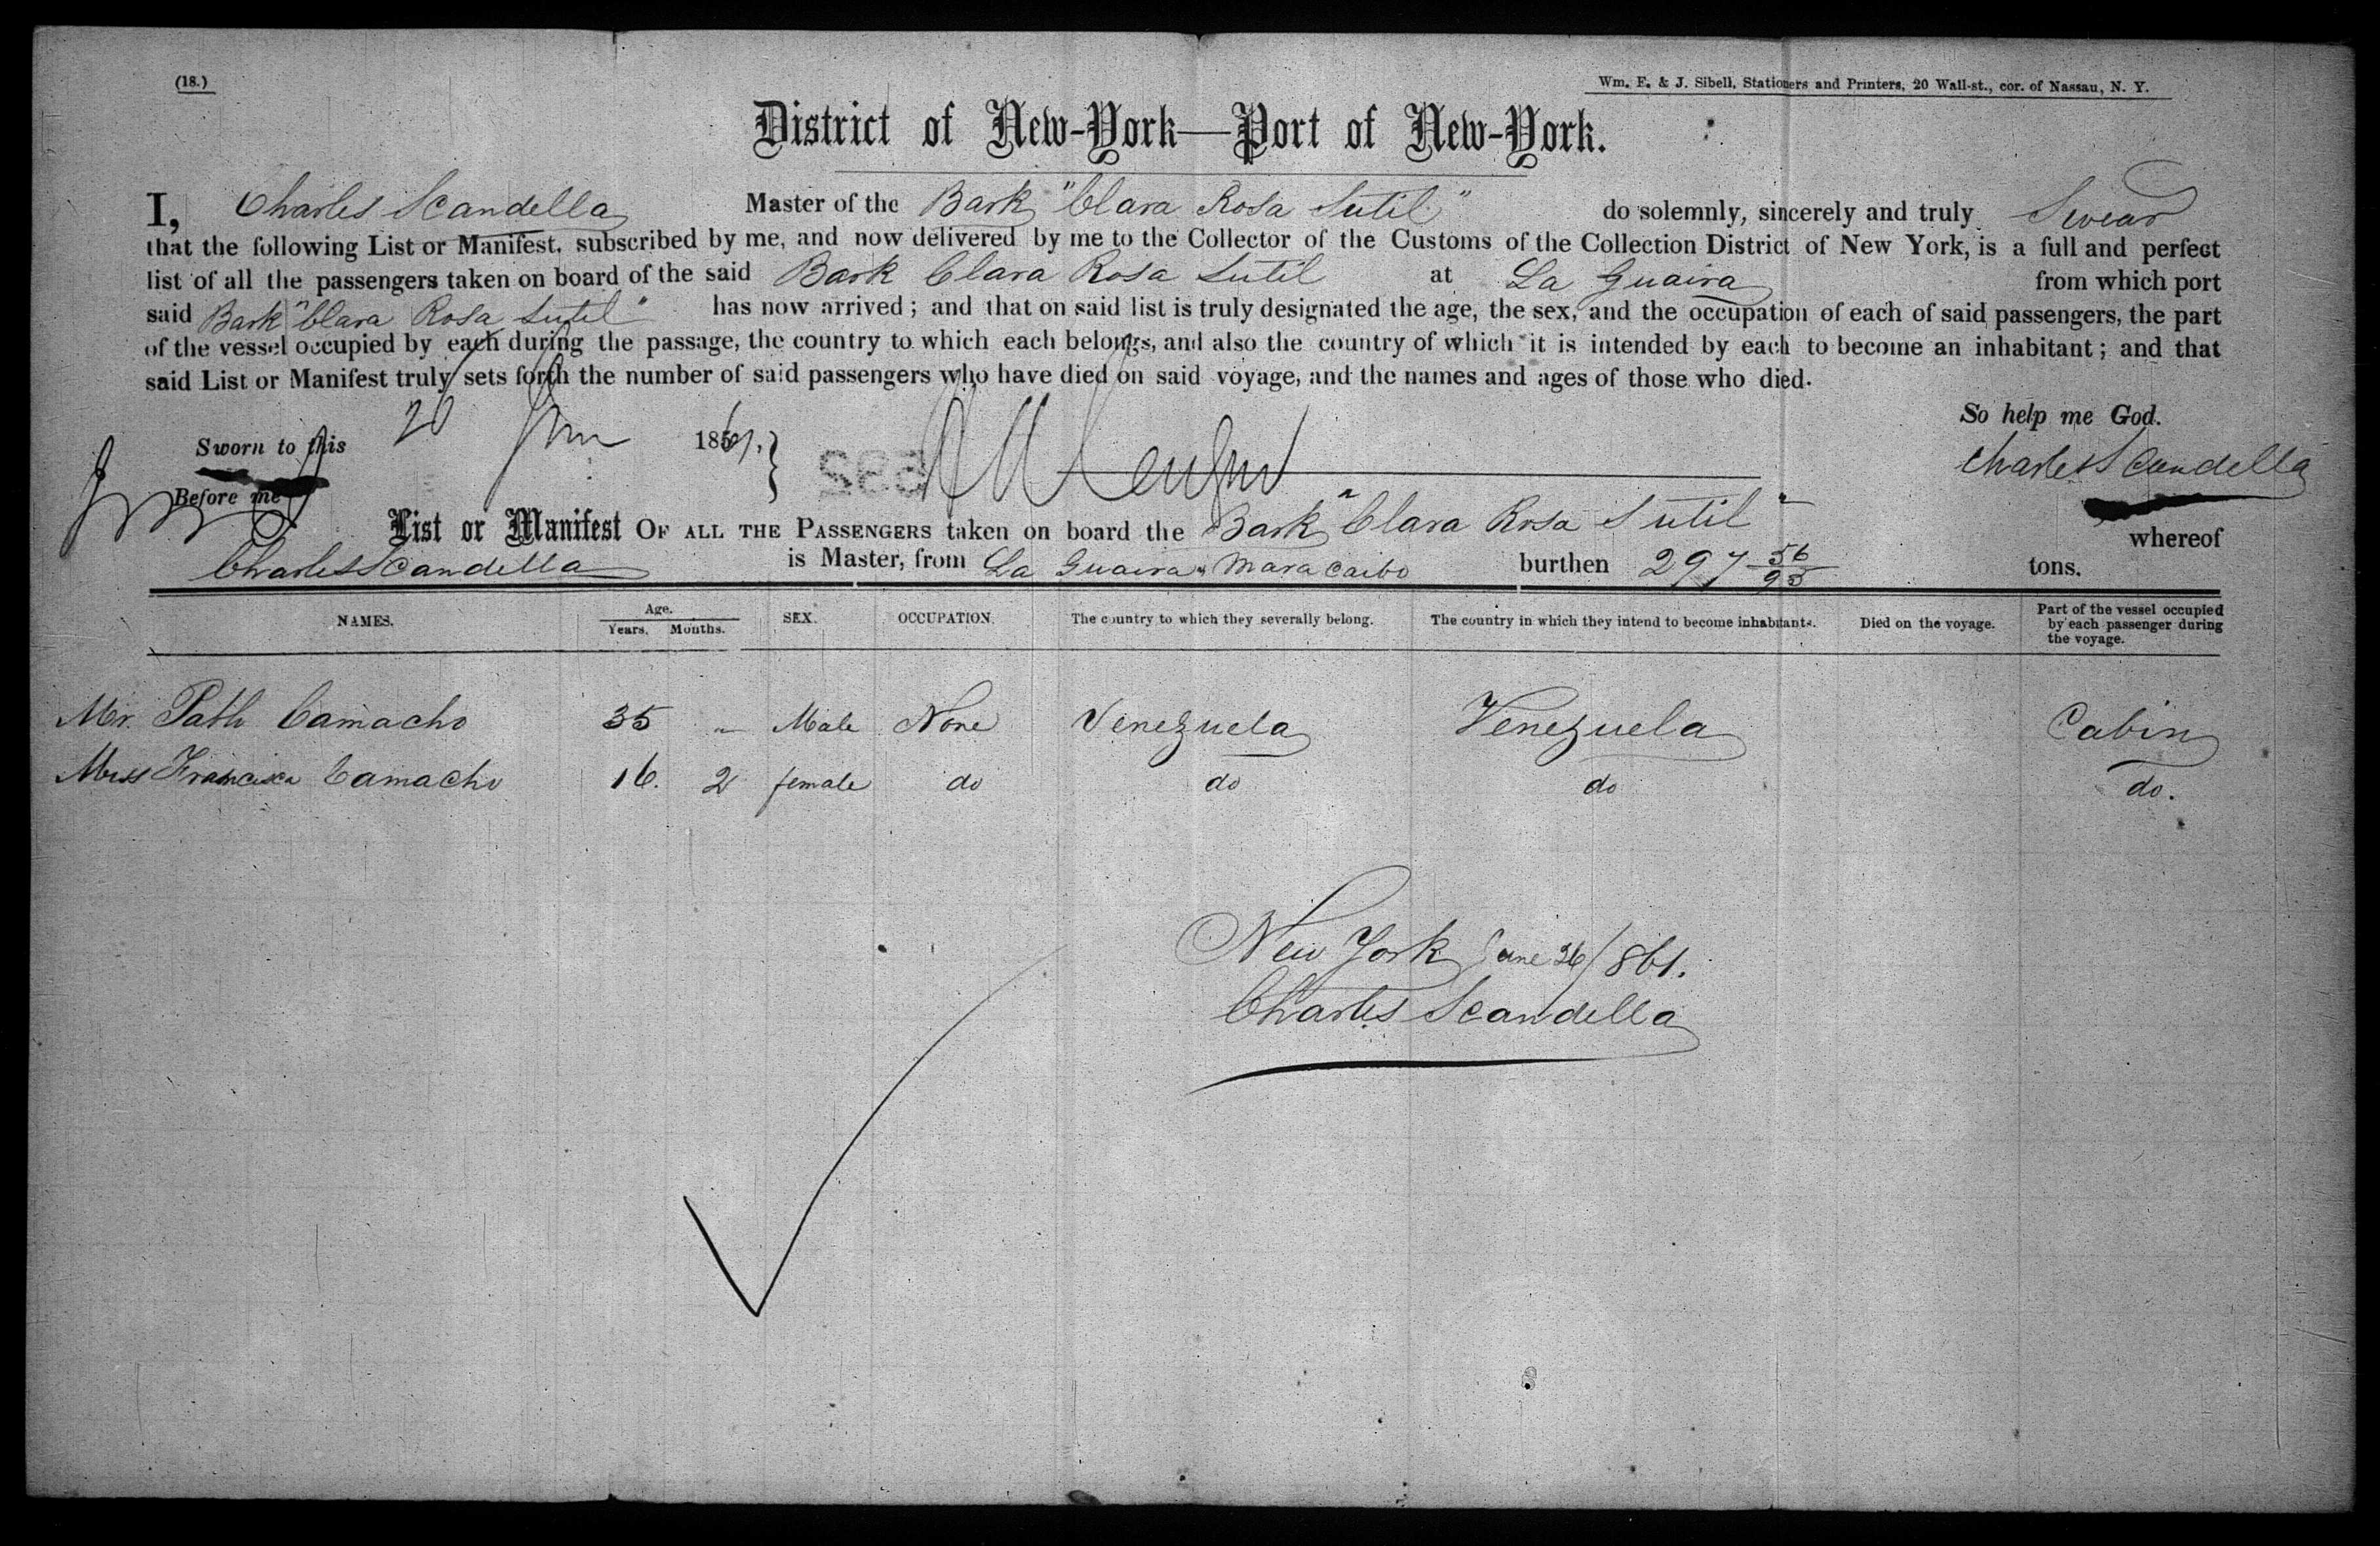 (18.)
Wm. F. & J. Sibell, Stationers and Printers, 20 Wall-st., cor. of Nassau, N. Y.
District of New-York—Port of New-York.
I, Charles Scandella Master of the Bark "Clara Rosa Sutil" do solemnly, sincerely and truly Swear
that the following List or Manifest, subscribed by me, and now delivered by me to the Collector of the Customs of the Collection District of New York, is a full and perfect
list of all the passengers taken on board of the said Bark Clara Rosa Sutil at La Guaira from which port
said Bark "Clara Rosa Sutil" has now arrived; and that on said list is truly designated the age, the sex, and the occupation of each of said passengers, the part
of the vessel occupied by each during the passage, the country to which each belongs, and also the country of which it is intended by each to become an inhabitant; and that
said List or Manifest truly sets forth the number of said passengers who have died on said voyage, and the names and ages of those who died.
So help me God.
Sworn to this 26 June 1861. 592 Charles Scandella
Before me
List or Manifest OF ALL THE PASSENGERS taken on board the Bark "Clara Rosa Sutil" whereof
Charles Scandella is Master, from La Guaira & Maracaibo burthen 297 56/95 tons.
NAMES. Age. Years. Months. SEX. OCCUPATION. The country to which they severally belong. The country in which they intend to become inhabitants. Died on the voyage. Part of the vessel occupied by each passenger during the voyage.
Mr. Path Camacho 35 " Male None Venezuela Venezuela Cabin
Miss Francisca Camacho 16. 2 female do do do do.
New York June 26/861.
Charles Scandella